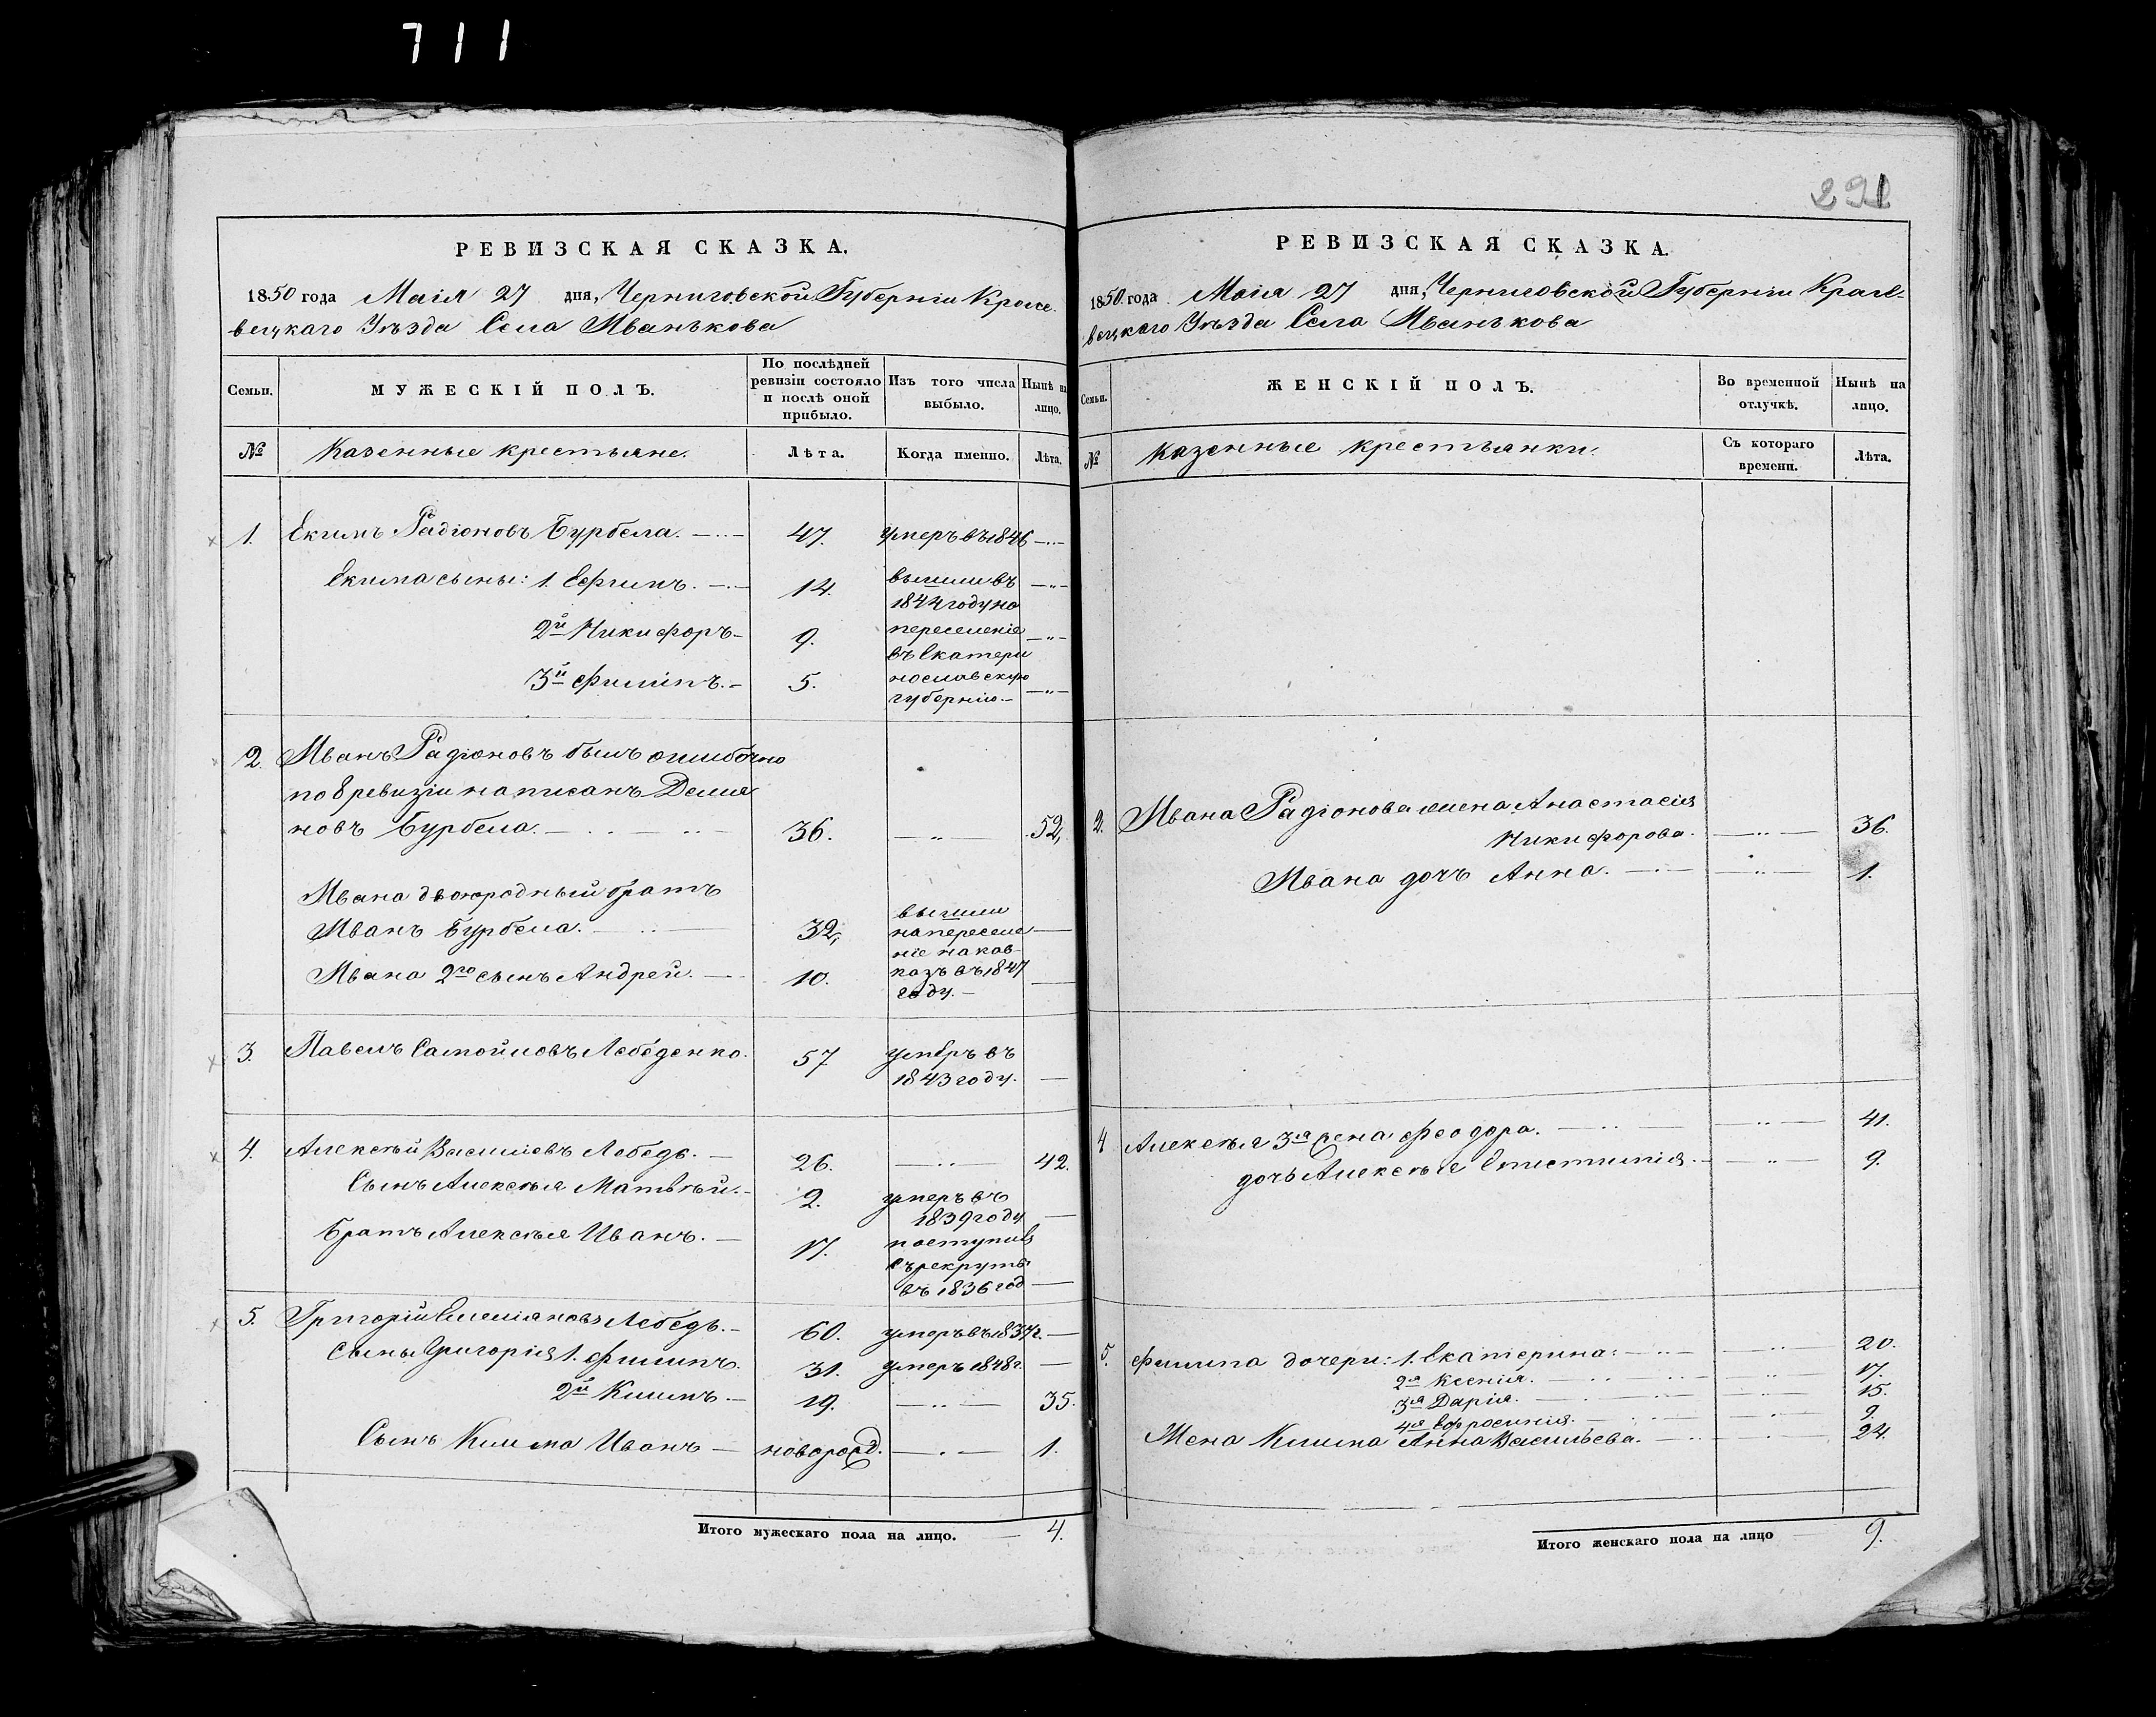 711
291
РЕВИЗСКАЯ СКАЗКА.
1850 года Маія 27 дня, Черниговской Губерніи Кроле-
вецкаго Уѣзда Села Иванькова
Семьи.
МУЖЕСКІЙ ПОЛЪ.
По послѣдней ревизіи состояло и послѣ оной прибыло.
Изъ того числа выбыло.
Нынѣ на лицо.
№
Казенные крестьяне.
Лѣта.
Когда именно.
Лѣта.
1. Екимъ Радіоновъ Бурбела. 47. умеръ въ 1846
Екима сыны: 1. Ефимъ. 14. вышли въ
1844 году на
2й Никифоръ 9. переселеніе
въ Екатери
3й Филипъ. 5. нославскую
губернію.
2. Иванъ Радіоновъ былъ ошибочно
по 8 ревизіи написанъ Демья
новъ Бурбела. 36. 52,
Ивана двоюродный братъ
Иванъ Бурбела. 32, вышли
на переселе
ніе на кав-
Ивана 2го сынъ Андрей. 10. казъ въ 1847
году.
3. Павелъ Самойловъ Лебеденко. 57 умеръ въ
1843 году.
4. Алексѣй Василіевъ Лебедь. 26. 42.
Сынъ Алексѣя Матвѣй. 2. умеръ въ
1839 году
Братъ Алексѣя Иванъ. 17. поступилъ
въ рекруты
въ 1836 год
5. Григорій Емеліяновъ Лебедь. 60. умеръ въ 1837г.
Сыны Григорія 1. Филипъ. 31. умеръ 1848г.
2й Климъ. 19. 35.
Сынъ Клима Иванъ новорожд. 1.
Итого мужескаго пола на лицо. 4.
РЕВИЗСКАЯ СКАЗКА.
1850 года Маія 27 дня, Черниговской Губерніи Кроле-
вецкаго Уѣзда Села Иванькова
Семьи.
ЖЕНСКІЙ ПОЛЪ.
Во временной отлучкѣ.
Нынѣ на лицо.
№
Казенные крестьянки.
Съ котораго времени.
Лѣта.
2. Ивана Радіонова жена Анастасія
Никифорова. 36.
Ивана дочь Анна. 1.
4 Алексѣя 3я жена Феодора. 41.
дочь Алексѣя Епистимія. 9.
5. Филипа дочери: 1. Екатерина. 20.
2я Ксенія. 17.
3я Дарія. 15.
4я Ефросинія. 9.
Жена Клима Анна Васильева. 24.
Итого женскаго пола на лицо 9.